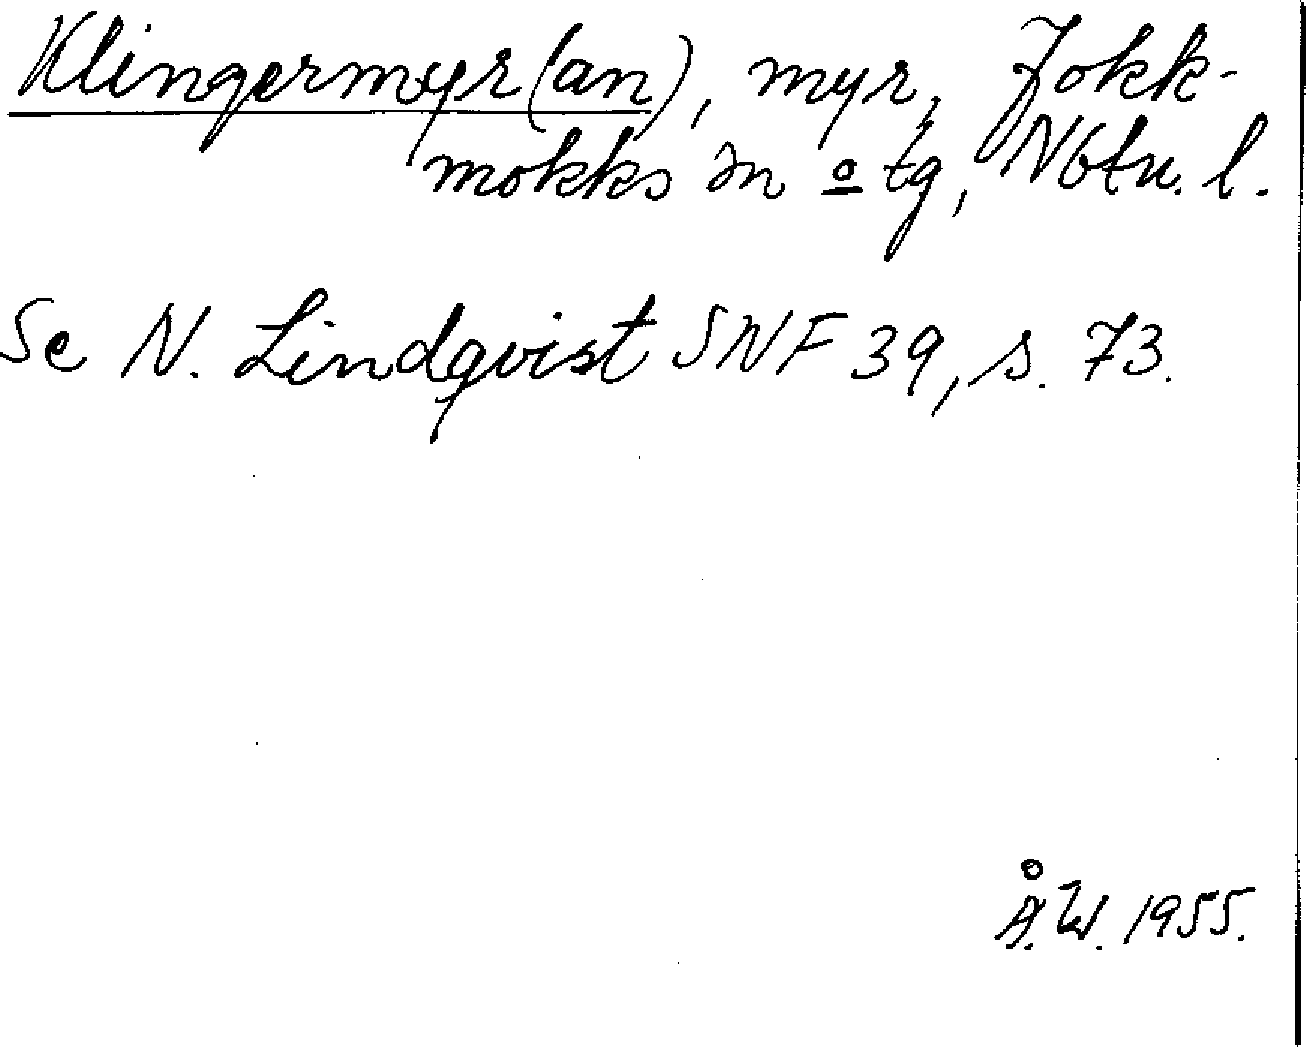 Klingermyr(an), myr, Jokk-
mokks sn o tg, Nbtn. l.
Se N. Lindqvist SNF 39, s. 73.
Å. W. 1955.